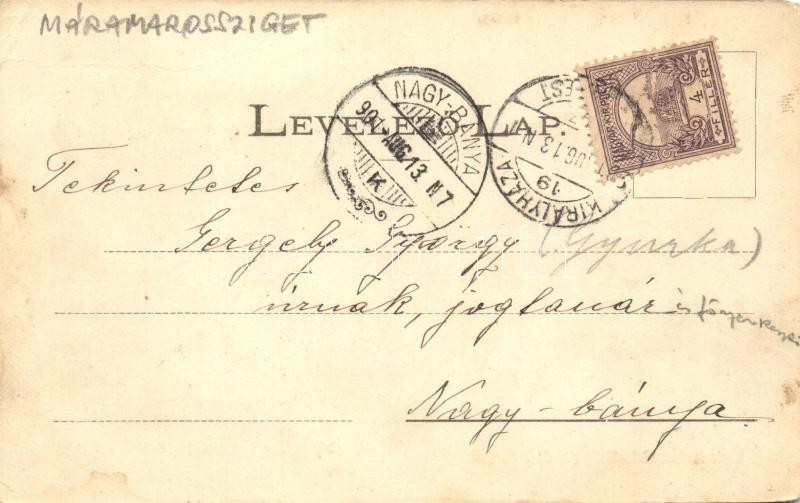 MÁRAMAROSSZIGET
MAGYAR KIR. POSTA
4
FILLÉR
NAGY-BÁNYA
901 AUG. 13. N 7
K
KIRÁLYHÁZA
EST
AUG. 13 N
19
LEVELEZŐ-LAP.
Tekintetes
Gergely György (Gyurka)
úrnak, jogtanár és
Nagy-bánya